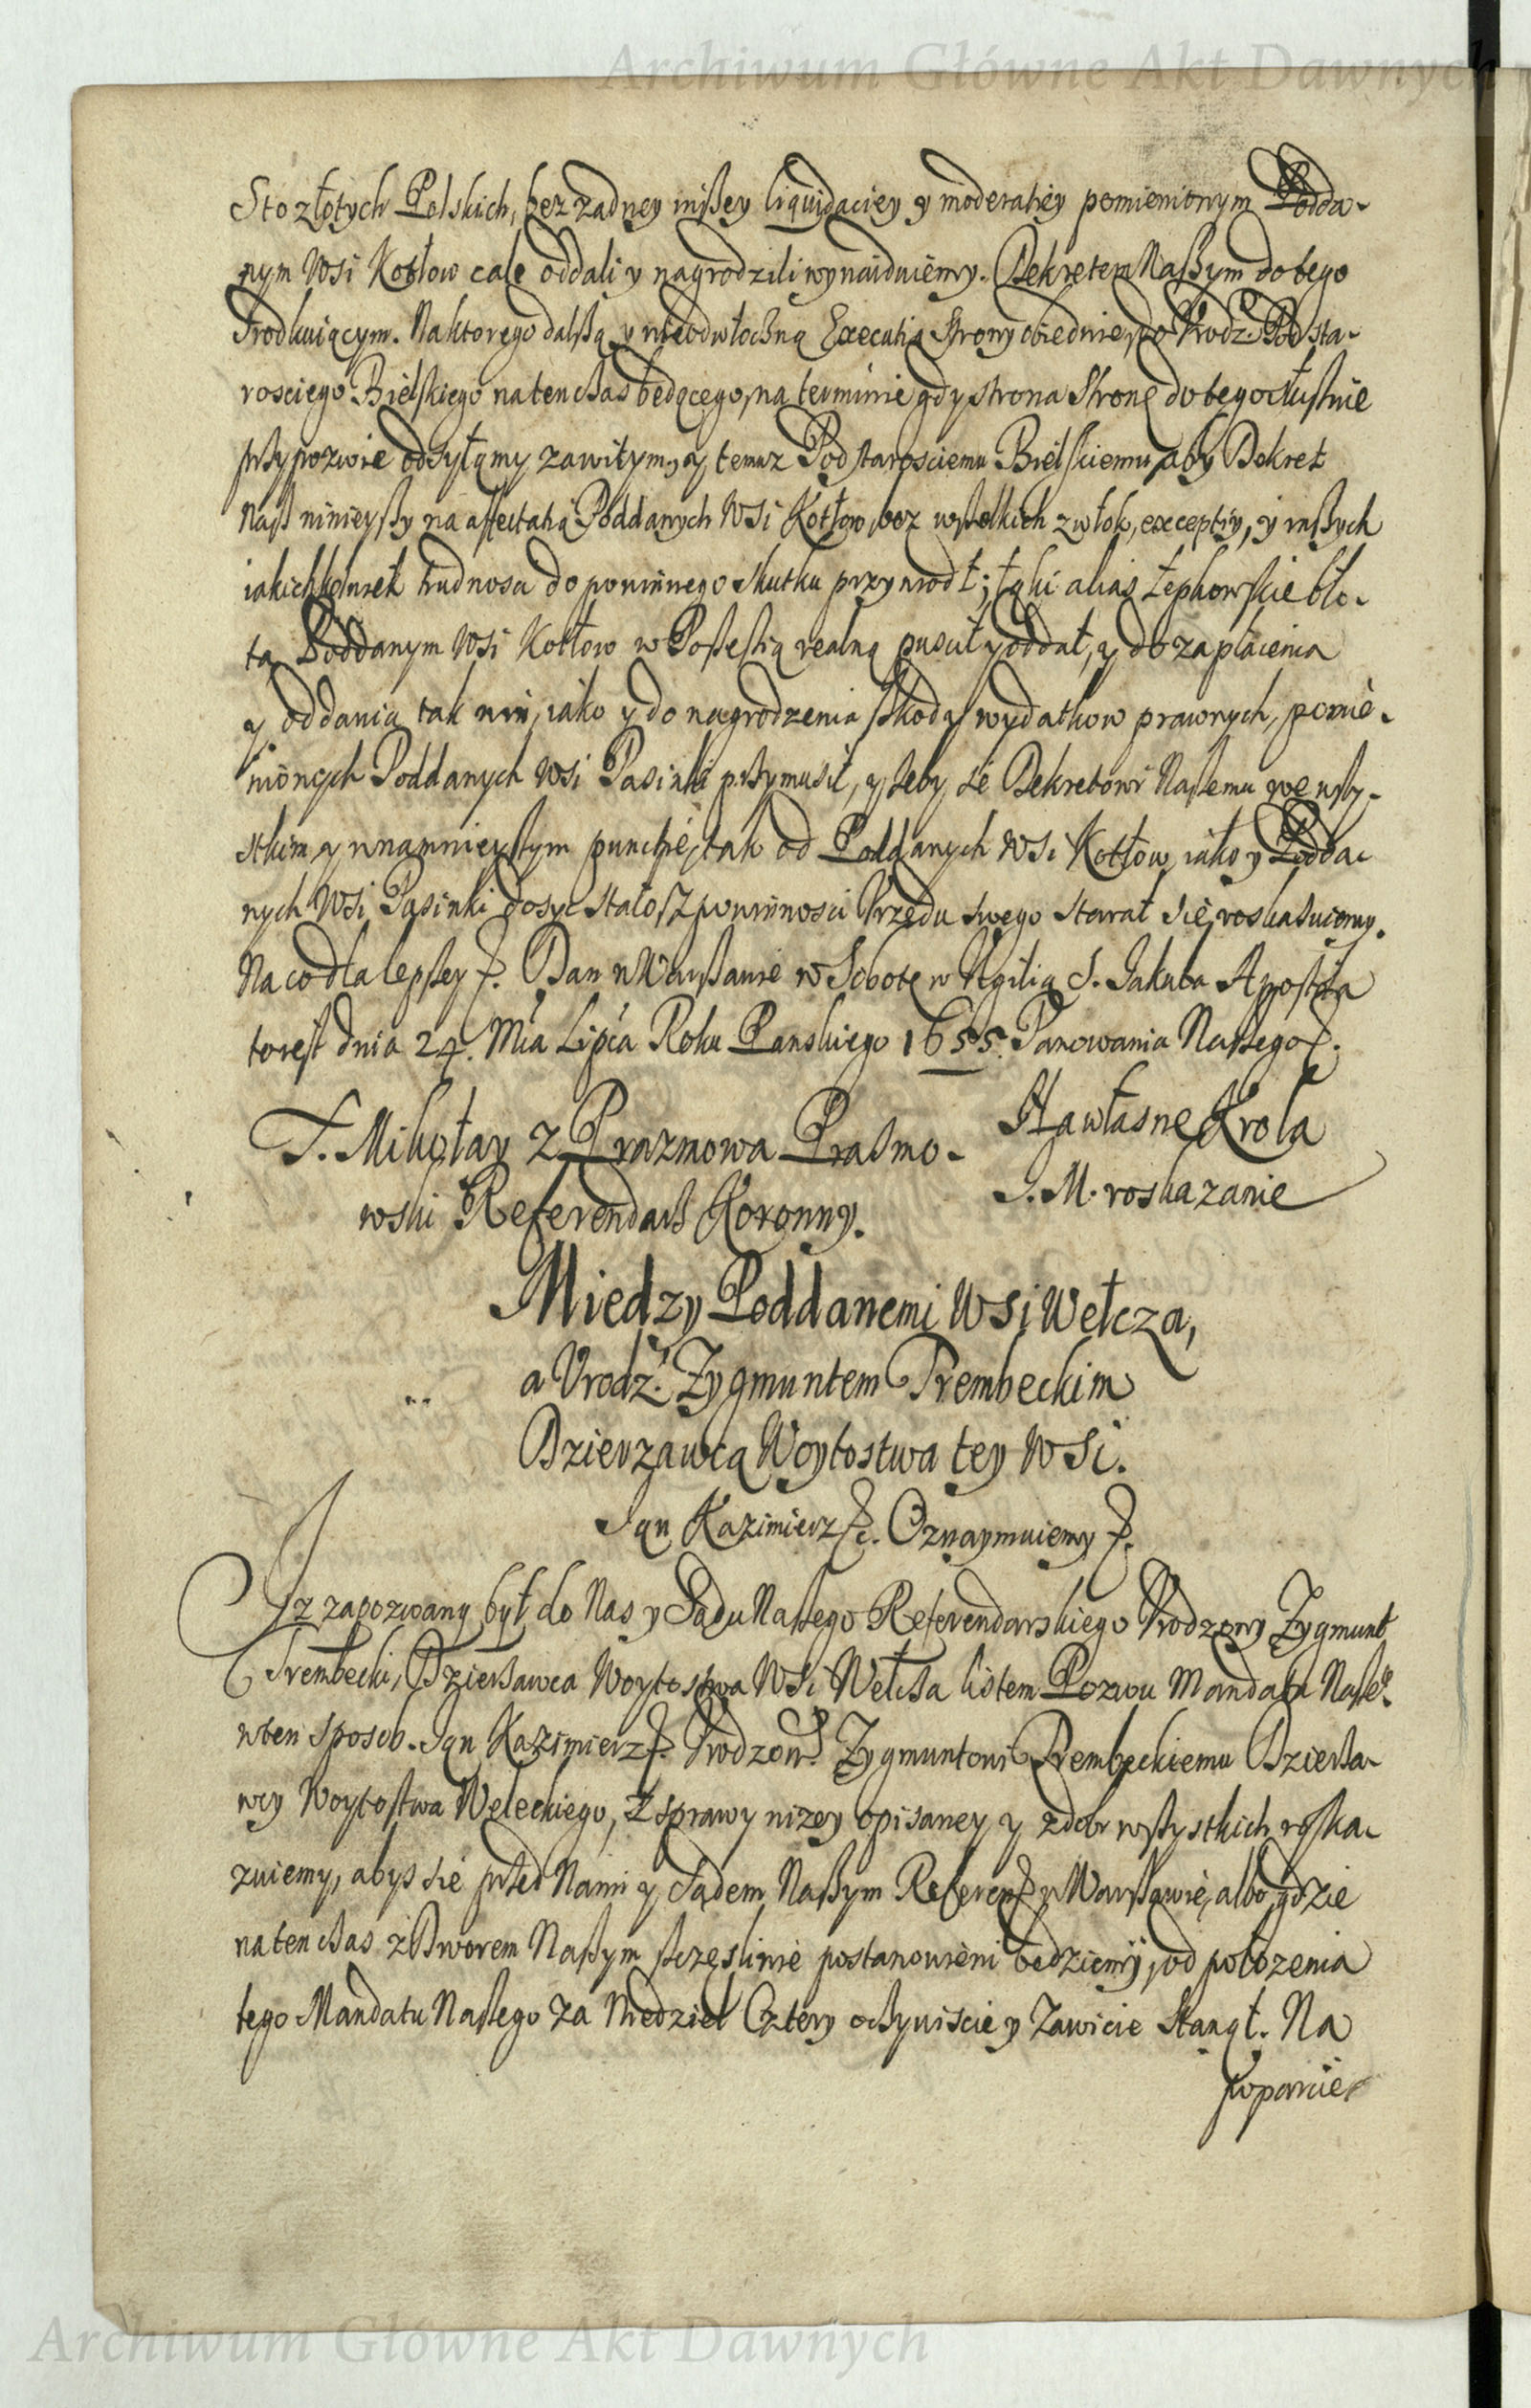 Archiwum Główne Akt Dawnych
Sto złotych Polskich, bez zadney inßey liquidaciey y moderatiey pomienionym Podda-
nym Wsi Kotłow cale oddali y nagrodzili wynaiduiemy. Dekretem Naßym do tego
srodkuiącym. Na ktorego dalßą y nieodwłoczną Executią Strony obiedwie do Vrodz. Podsta-
rosciego Bielskiego natenczas będącego, na terminie gdy strona Stronę do tego słusznie
przypozwie odsyłamy zawitym, y temuz Podstarosciemu Bielskiemu aby Dekret
Naß ninieyßy na affectatią Poddanych Wsi Kotłow, bez wßelkich zwłok, exceptiy, y inßych
iakichkolwiek trudnosci do powinnego skutku przywiodł; łąki alias Łepkowskie bło-
ta Poddanym Wsi Kotłow w Poßeßią realną puscił y oddał, y do zapłacenia
y oddania tak win, iako y do nagrodzenia ßkod y wydatkow prawnych, pomie-
nionych Poddanych Wsi Pasinki przymusił, y zeby se Dekretowi Naßemu we wßy-
stkim y wnamnieyßym punctie, tak od Poddanych Wsi Kotłow, iako y Podda-
nych Wsi Pasinki dosyc stało, z powinnosci Vrzędu swego starał się, roskazuiemy.
Na co dla lepßey &. Dan w Warßawie w Sobotę w Vigilią S. Jakuba Apostoła
to iest dnia 24. Mca Lipca Roku Panskiego 1655. Panowania Naßego &.
F. Mikołay z Prazmowa Prazmo-
wski Referendarz Koronny.
Na własne Krola
J. M. roskazanie
Miedzy Poddanemi Wsi Wełcza,
a Vrodz. Zygmuntem Trembeckim
Dzierzawcą Woytostwa tey Wsi.
Jan Kazimierz &c. Oznaymuiemy &.
Jz zapozwany był do Nas y Sądu Naßego Referendarskiego Vrodzony Zygmunt
Trembecki, Dzierzawca Woytostwa Wsi Wełcza listem Pozwu Mandatu Naße°
w ten sposob. Jan Kazimierz &. Vrodzon. Zygmuntowi Trembeckiemu Dzierza-
wcy Woytostwa Weleckiego, Z sprawy nizey opisaney y z dobr wßystkich roska-
zuiemy, abys się przed Nami y Sądem Naßym Referen& w Warßawie, albo gdzie
natenczas z Dworem Naßym ßczęsliwie postanowieni będziemy, od połozenia
tego Mandatu Naßego za Niedziel Cztery oczywiscie y zawicie stanął. Na
poparcie
Archiwum Główne Akt Dawnych